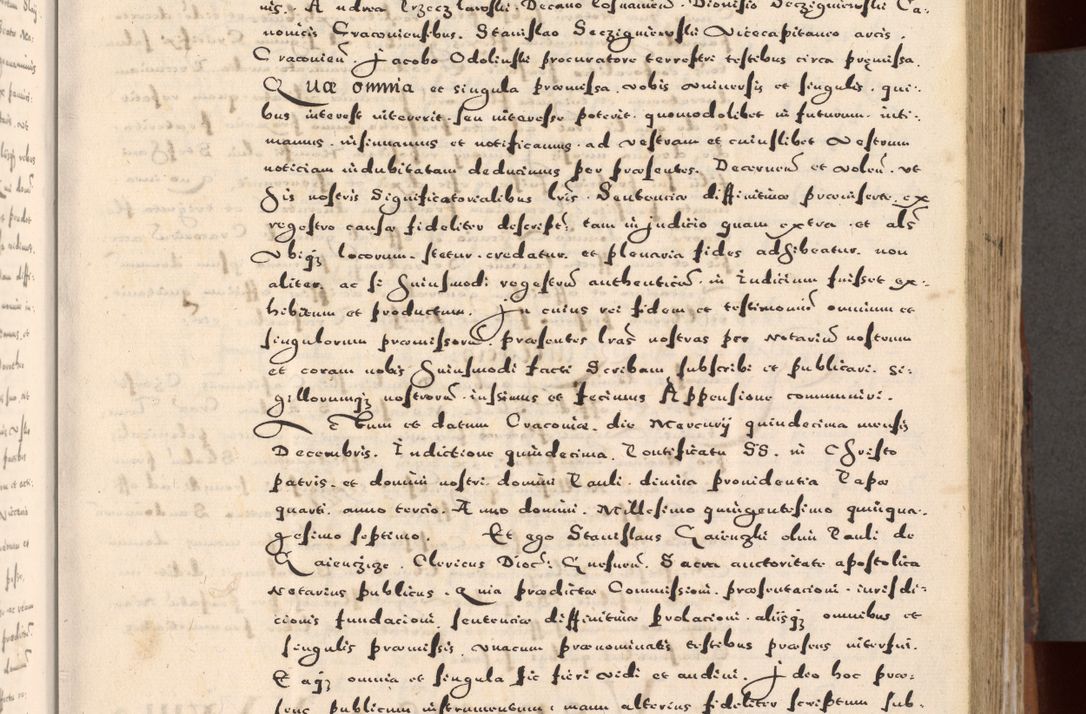 nis. Andrea Trzeczlawski. Decano Posnanien. Dionisio Seczigniewski Ca-
nonicis Cracoviensibus. Stanislao Seczigniewski Vicecapitaneo arcis.
Cracovien. Jacobo Odolinski procuratore terrestri testibus circa præmissa.
Quæ omnia et singula præmissa vobis universis et singulis. qui-
bus interest intererit seu interesse poterit quomodolibet in futurum inti-
mamus. insinuamus et notificamus. ad vestram et cuiuslibet vestrum
noticiam indubitatam deducimus per præsentes. Decernen et volen. ut
his nostris significatorialibus lris. Sententiæ diffinitivæ præinsertæ ex
regestro causæ fideliter descript. tam in judicio quam extra et als
Ubiq locorum. stetur. credatur. et plenaria fides adhibeatur. non
aliter. ac si huiusmodi regestrum authenticum in Judicium fuisset ex-
hibitum et productum. In cuius rei fidem et testimonium omnium et
singulorum præmissorum. præsentes lras nostras per Notarium nostrum
et coram nobis huiusmodi facti Scribam subscribi et publicari. Si-
gillorumq nostrorum iussimus et fecimus Appensione communiri.
Actum et datum Cracoviæ. die Mercurij quindecima mensis
Decembris. Indictione quindecima. Pontificatu SS. in Christo
patris. et domini nostri domini Pauli. divina providentia Papæ
quarti. anno tercio. Anno domini. Millesimo quingentesimo quinqua-
gesimo septimo. Et ego Stanislaus Gaienczki olim Pauli de
Gaienczicze. Clericus Dioc: Gnesnen. Sacra auctoritate apostolica
Notarius publicus. Quia prædictæ Commissioni. præsentacioni. iurisdi-
cionis fundacioni sententiæ diffinitivæ prolacioni. aliisq omnibus et
singulis præmissis. unacum prænominatis testibus præsens interfui.
Eaq omnia et singula sic fieri vidi et audivi. Ideo hoc præ-
sens publicum instrumentum. manu alterius fideliter scriptum sub-